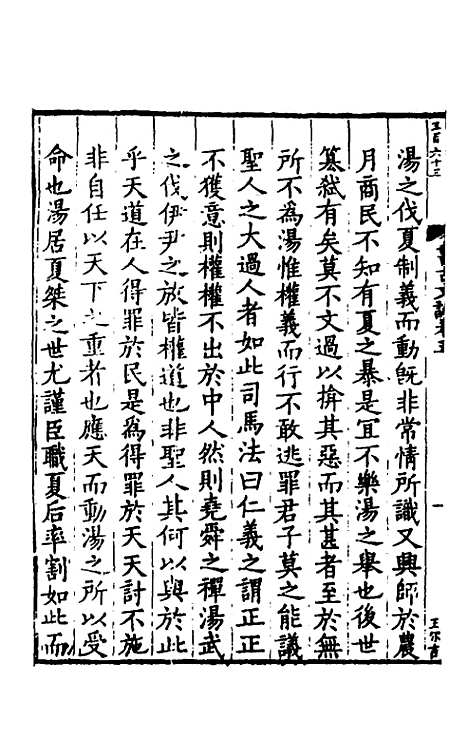 湯之伐夏制義而動旣非常情所識又興師於農
月商民不知有夏之暴是宜不樂湯之舉也後世
篡弑有矣莫不文過以揜其惡而其甚者至於無
所不為湯惟權義而行不敢逃罪君子莫之能議
聖人之大過人者如此司馬法曰仁義之謂正正
不獲意則權權不出於中人然則堯舜之禪湯武
之伐伊尹之放皆權道也非聖人其何以與於此
乎天道在人得罪於民是為得罪於天天討不施
非自任以天下之重者也應天而動湯之所以受
命也湯居夏桀之世尤謹臣職夏后率割如此而